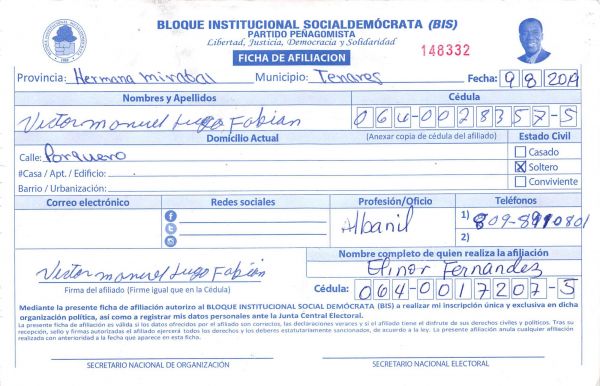 BLOQUE INSTITUCIONAL SOCIALDEMÓCRATA (BIS)
PARTIDO PEÑAGOMISTA
Libertad, Justicia, Democracia y Solidaridad
FICHA DE AFILIACION
148332
Provincia: Hermana mirabal Municipio: Tenares Fecha: 9/8/2019
Nombres y Apellidos Cédula
Victor manuel Lugo Fabian 064-0028357-5
Domicilio Actual (Anexar copia de cédula del afiliado) Estado Civil
Calle: Porquero
Casado
#Casa / Apt. / Edificio: X Soltero
Barrio / Urbanización: Conviviente
Correo electrónico Redes sociales Profesión/Oficio Teléfonos
Albanil 1) 809-8910801
2)
Nombre completo de quien realiza la afiliación
Victor manuel Lugo Fabián Elinor Fernandez
Firma del afiliado (Firme igual que en la Cédula) Cédula: 064-0017207-5
Mediante la presente ficha de afiliación autorizo al BLOQUE INSTITUCIONAL SOCIAL DEMÓCRATA (BIS) a realizar mi inscripción única y exclusiva en dicha
organización política, así como a registrar mis datos personales ante la Junta Central Electoral.
La presente ficha de afiliación es válida si los datos ofrecidos por el afiliado son correctos, las declaraciones veraces y si el afiliado tiene el disfrute de sus derechos civiles y políticos. Tras su
recepción, sello y firmas autorizadas el afiliado ejercerá todos los derechos y los deberes estatutariamente sancionados, de acuerdo a la ley. La presente afiliación anula cualquier afiliación
realizada con anterioridad a la fecha que aparece en esta ficha.
SECRETARIO NACIONAL DE ORGANIZACIÓN SECRETARIO NACIONAL ELECTORAL